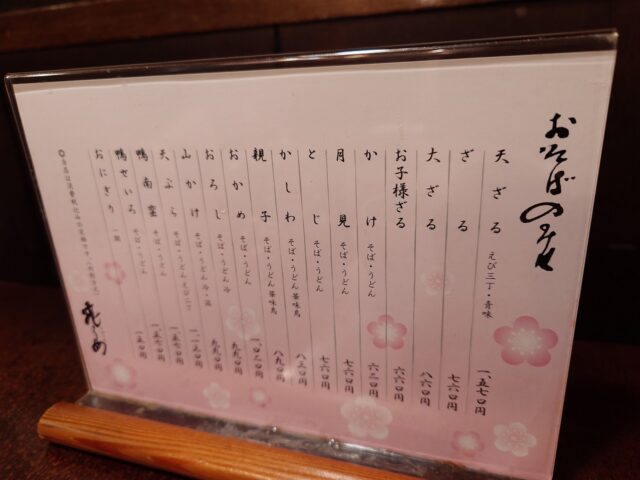 おそばのみせ
天ざる えび三丁・青味 一、五七〇円
ざる 七六〇円
大ざる 八六〇円
お子様ざる 六六〇円
かけ そば・うどん 六二〇円
月見 そば・うどん 七六〇円
とじ そば・うどん 七六〇円
かしわ そば・うどん 華味鳥 八三〇円
親子 そば・うどん 華味鳥 八九〇円
おかめ そば・うどん 一、〇二〇円
おろし そば・うどん 冷 九九〇円
山かけ そば・うどん 冷・温 九九〇円
天ぷら そば・うどん えび二丁 一、一五〇円
鴨南蛮 そば・うどん 一、五七〇円
鴨せいろ そば・うどん 一、五七〇円
おにぎり 一個 一五〇円